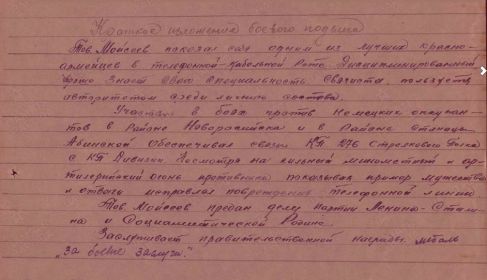 Краткое изложение боевого подвига
Тов Мойсеев показал себя одним из лучших красно-
армейцев в телефонной-кабельной роте. Дисциплинированный
знает свою специальность связиста, пользуется
авторитетом среди личного состава.
Участвуя в боях против немецких оккупан-
тов в районе Новороссийска и в районе станицы
Абинской обеспечивая связь КП 1276 стрелкового полка
с КП Дивизии. Несмотря на сильный минометный и ар-
тилерийский огонь противника показывая пример мужества
и отваги исправлял повреждения телефонной линии
Тов Мойсеев предан делу партии Ленина-Стали-
на и Социалистической Родине.
Заслуживает правительственной награды медаль
„за боевые заслуги".